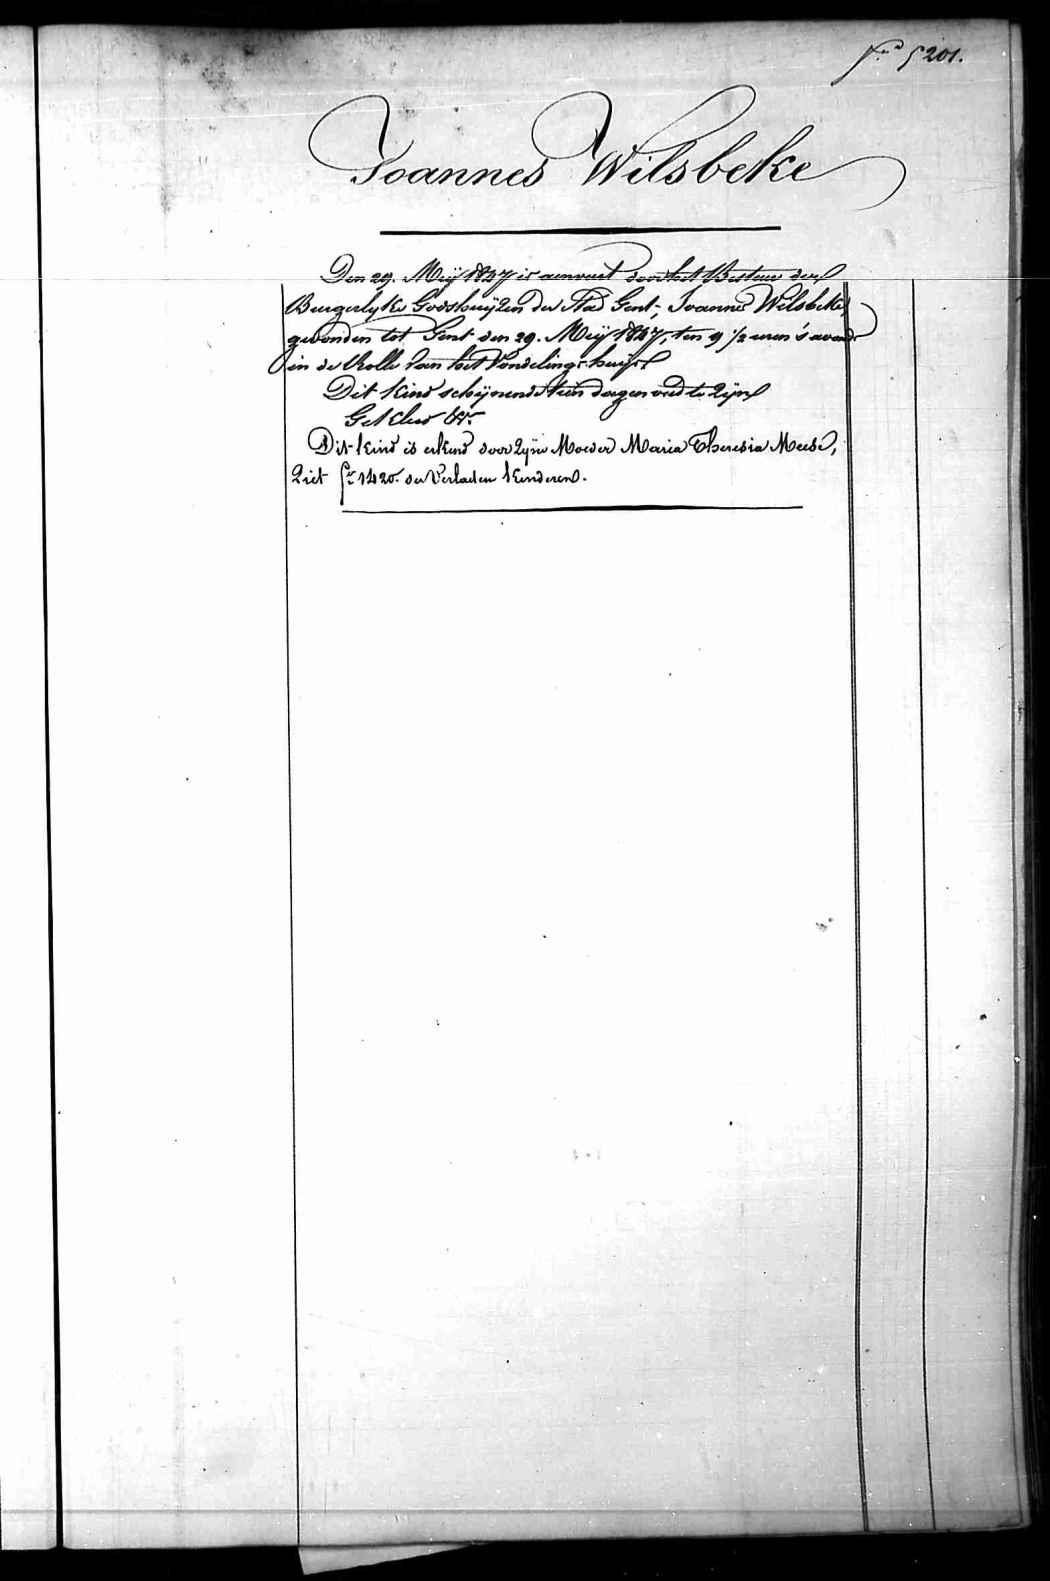 f.º 5201.
Joannes Wilsbeke
Den 29. Meij 1847 is aenveert door het Bestuur der
Burgerlyke Godshuijzen der Stad Gent, Joannes Wilsbeke,
gevonden tot Gent den 29. Meij 1847, ten 9 1/2 uren 's avonds
in de Rolle van het Vondelingshuijs
Dit kind schijnende tien dagen oud te zijn
Get
Dit kind is erkend door zyne Moeder Maria Theresia Meese,
Ziet f.º 1420. der Verlaeten kinderen.